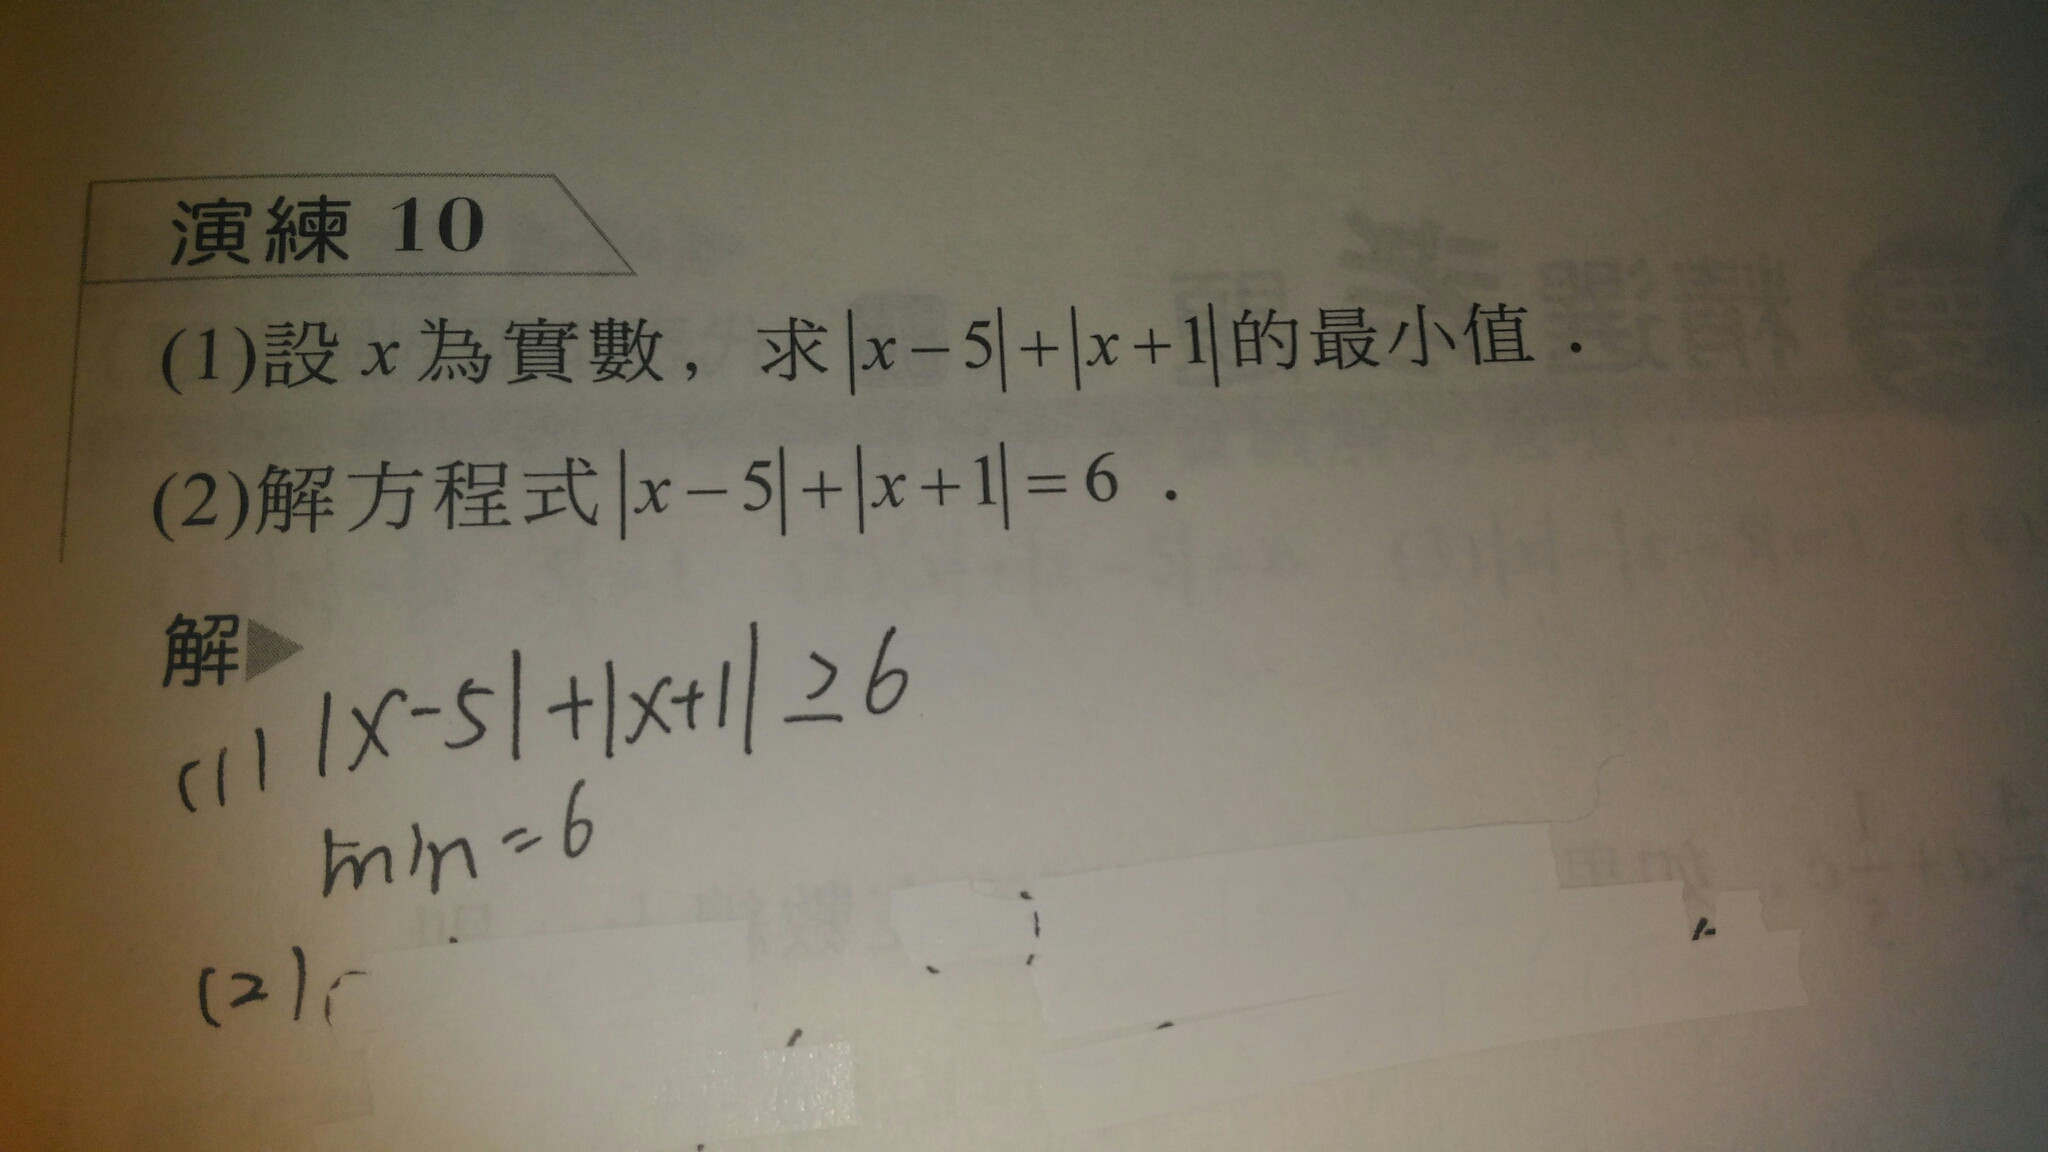 演練 10
(1)設 x 為實數，求|x－5|+|x+1|的最小值．
(2)解方程式|x－5|+|x+1|=6．
解▶
(1) |x-5|+|x+1|≥6
min=6
(2)